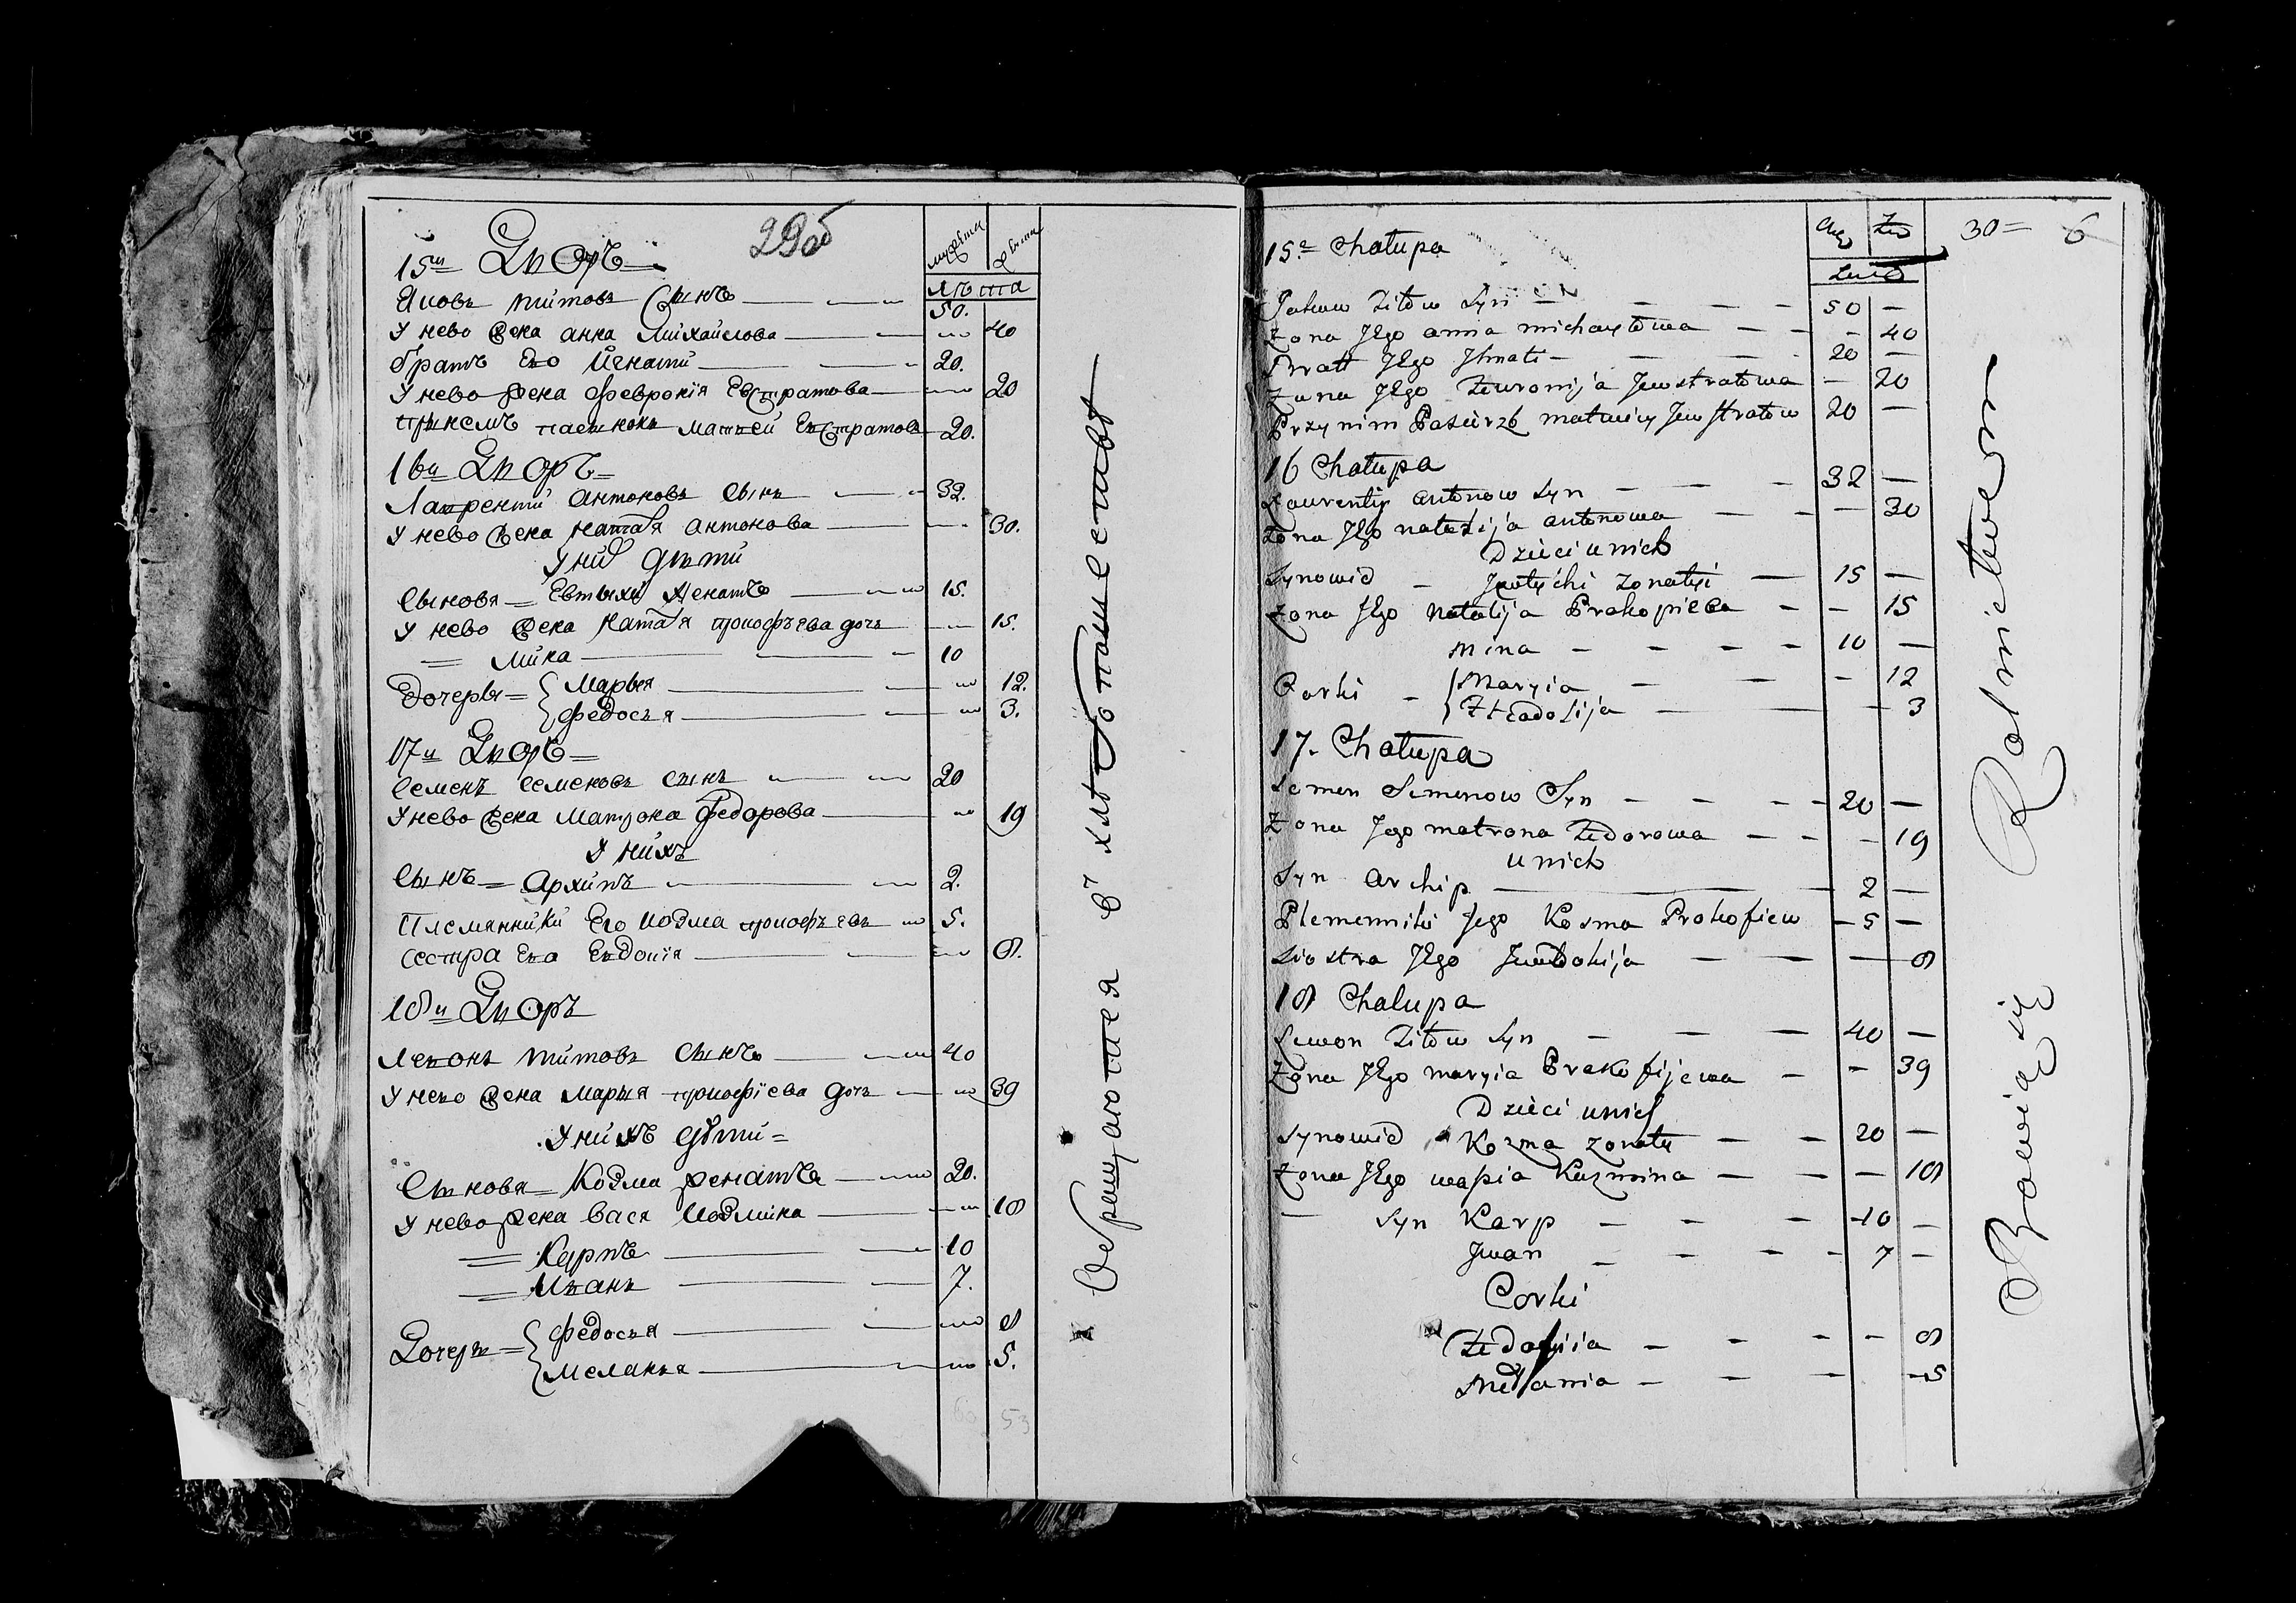 29об
15й Дворъ
мужеска
женска
лѣта
Яковъ титовъ Сынъ 50.
У нево жена анна Михайлова 40
братъ Ево Игнатй 20.
У нево жена февронія Евстратова 20
При немъ пасынокъ матвей Евстратовъ 20.
16й Дворъ
Лаврентй антоновъ сынъ 32.
У нево жена Наталя антонова 30.
У них дѣти
Сыновя = Евтыхй женатъ 15.
У нево жена Наталя прокофъева дочъ 15.
= Мина 10
Дочеры = Марья 12.
федосъя 3.
17й Дворъ
Семенъ Семеновъ сынъ 20
У нево жена Матрона федорова 19
У нихъ
Сынъ = архипъ 2.
Племянники Его Козма прокофъевъ 5.
сестра Ево Евдокія 8.
18й Дворъ
Левонъ титовъ сынъ 40
У нево жена Марыя прокофіева дочъ 39
У нихъ дѣти =
Сыновя = Козма женатъ 20.
У нево жена Вася Козмина 18
= Карпъ 10
= Иванъ 7.
Дочеры = федосъя 8
Меланъя 5.
53
Обращаются в хлѣбопашествѣ
30 = 6
15 = Chałupa
Męz Żeń
Lata
Jakow Titow Syn 50 —
Zona Jego anna michayłowa — 40
Bratt Jego Jhnati 20 —
Zona Jego Fewronija Jewstratowa — 20
Przy nim Pasierzb matwiey Jewstratow 20 —
16 Chałupa
Laurentiy antonow Syn 32 —
Zona Jego natalija antonowa — 30
Dzieci u nich
Synowie — Jewtychi zonatyi 15 —
Zona Jego Natalija Prakopiewa — 15
Mina 10 —
Corki — Maryia — 12
Fheadosija — 3
17. Chałupa
Semen Semenow Syn 20 —
Zona Jego matrona Fedorowa — 19
u nich
Syn archip 2 —
Plemenniki Jego Kosma Prokofiew 5 —
Siostra Jego Jewdokija — 8
18 Chalupa
Lewon Titow Syn 40 —
Zona Jego maryia Prakofijewa — 39
Dzieci u nich
Synowie Kozma zonaty 20 —
Zona Jego wasia Kuzmina — 18
— Syn Karp 10 —
Jwan 7 —
Corki
Fedosiia — 8
Mełania 5
Bawią się Rolnictwem